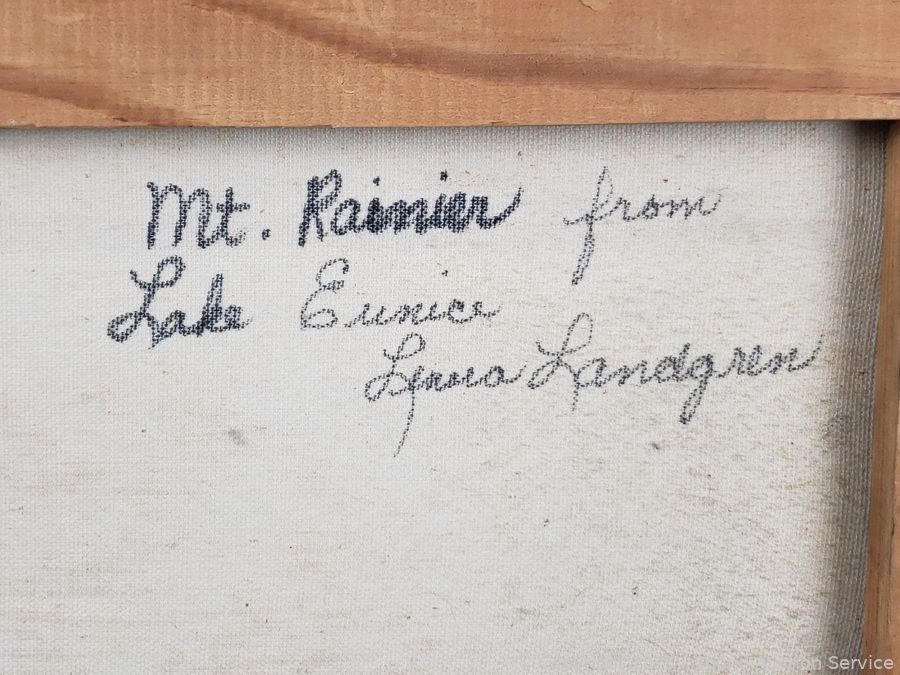 Mt. Rainier from
Lake Eunice
Landgren
Service